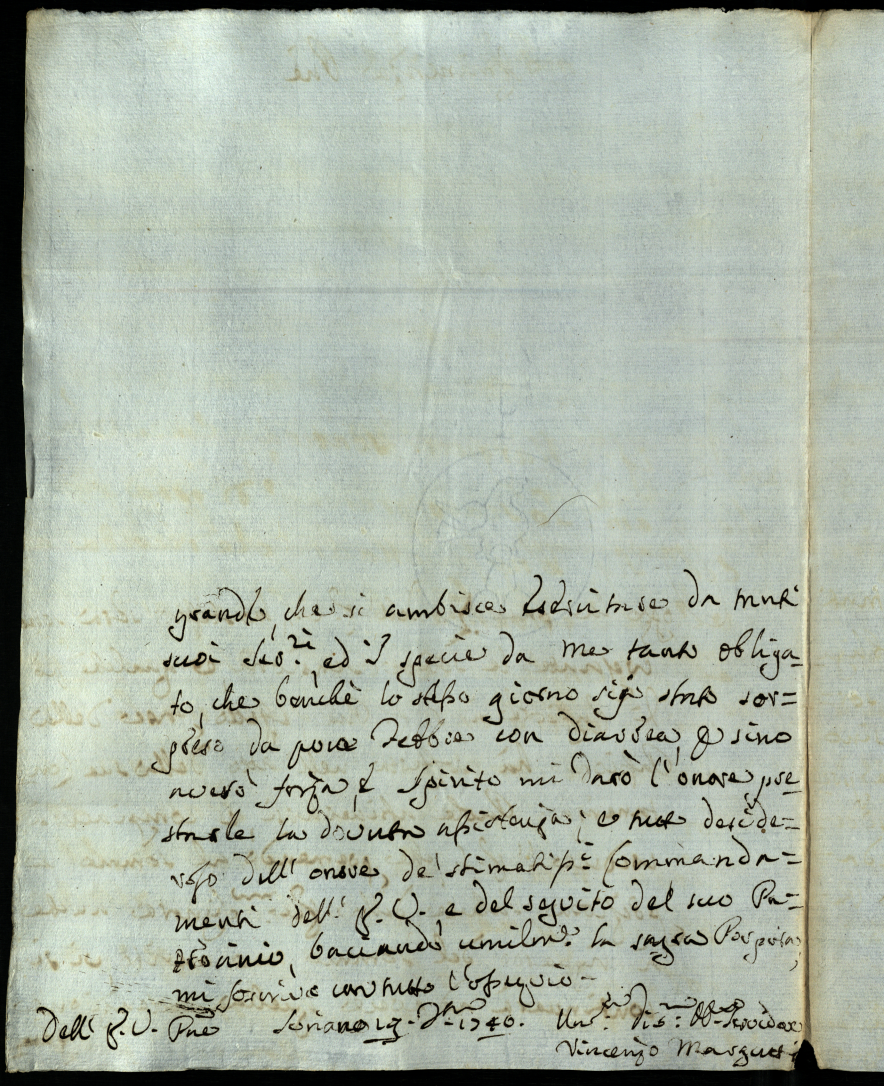 grande, che si ambisce esercitare da tutti
suoi Ser.ri, ed ĩ specie da me tanto obliga-
to, che benche lo stesso giorno sij stato sor=
preso da poca Febbre con diarrea, e sino
averò forza, e Spirito mi darò l'onore pre-
starle la dovuta assistenza; e tutto deside=
roso dell'onore de' stimatiss.i Commanda=
menti dell' E. V., e del seguito del suo Pa=
trocinio, baciando umilm.e la sagra Porpora,
mi soscrivo con tutto l'ossequio-
Dell' E. V. Pne Soriano 17. 1740. Um.o Div.o Obb.o Servidore
Vincenzo